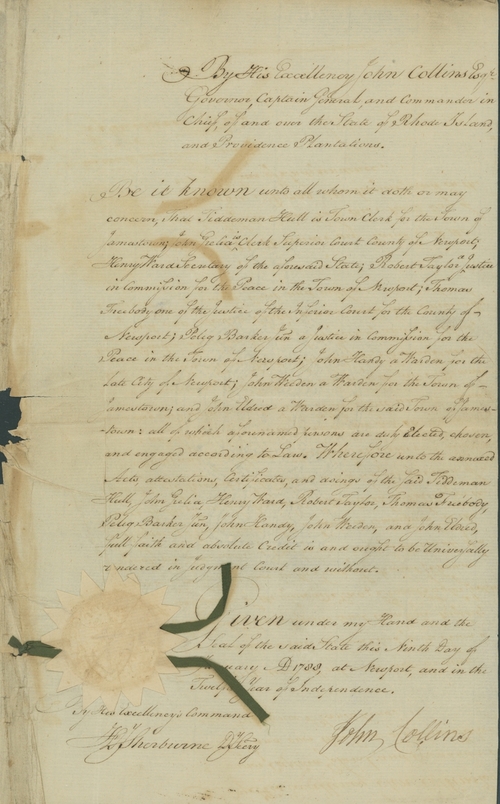 By His Excellency John Collins Esqr.
Governor, Captain General, and Commander in
Chief, of and over the State of Rhode Island,
and Providence Plantations.
Be it known unto all whom it doth or may
concern, that Tiddeman Hull is Town Clerk for the Town of
Jamestown; John Grelea Clerk Superior Court County of Newport;
Henry Ward Secretary of the aforesaid State; Robert Taylor Justice
in Commission of the Peace in the Town of Newport; Thomas
Freebody one of the Justice of the Inferior Court for the County of
Newport; Peleg Barker Jun a Justice in Commission for the
Peace in the Town of Newport; John Handy a Warden for the
Late City of Newport; John Weeden a Warden for the Town of
Jamestown; and John Eldred a Warden for the said Town of James-
-town: all of which aforenamed persons are duly Elected, chosen,
and engaged according to Law. Wherefore unto the annexed
Acts, attestations, Certificates, and doings of the said Tiddeman
Hull, John Grelea, Henry Ward, Robert Taylor, Thomas Freebody,
Peleg Barker Jun, John Handy, John Weeden, and John Eldred,
full faith and absolute Credit is and ought to be Universally
rendered in Judgment Court and without.
Given under my Hand and the
Seal of the said State this Ninth Day of
January AD 1788, at Newport, and in the
Twelfth Year of Independence.
By His Excellency's Command
Sherburne D Secry
John Collins